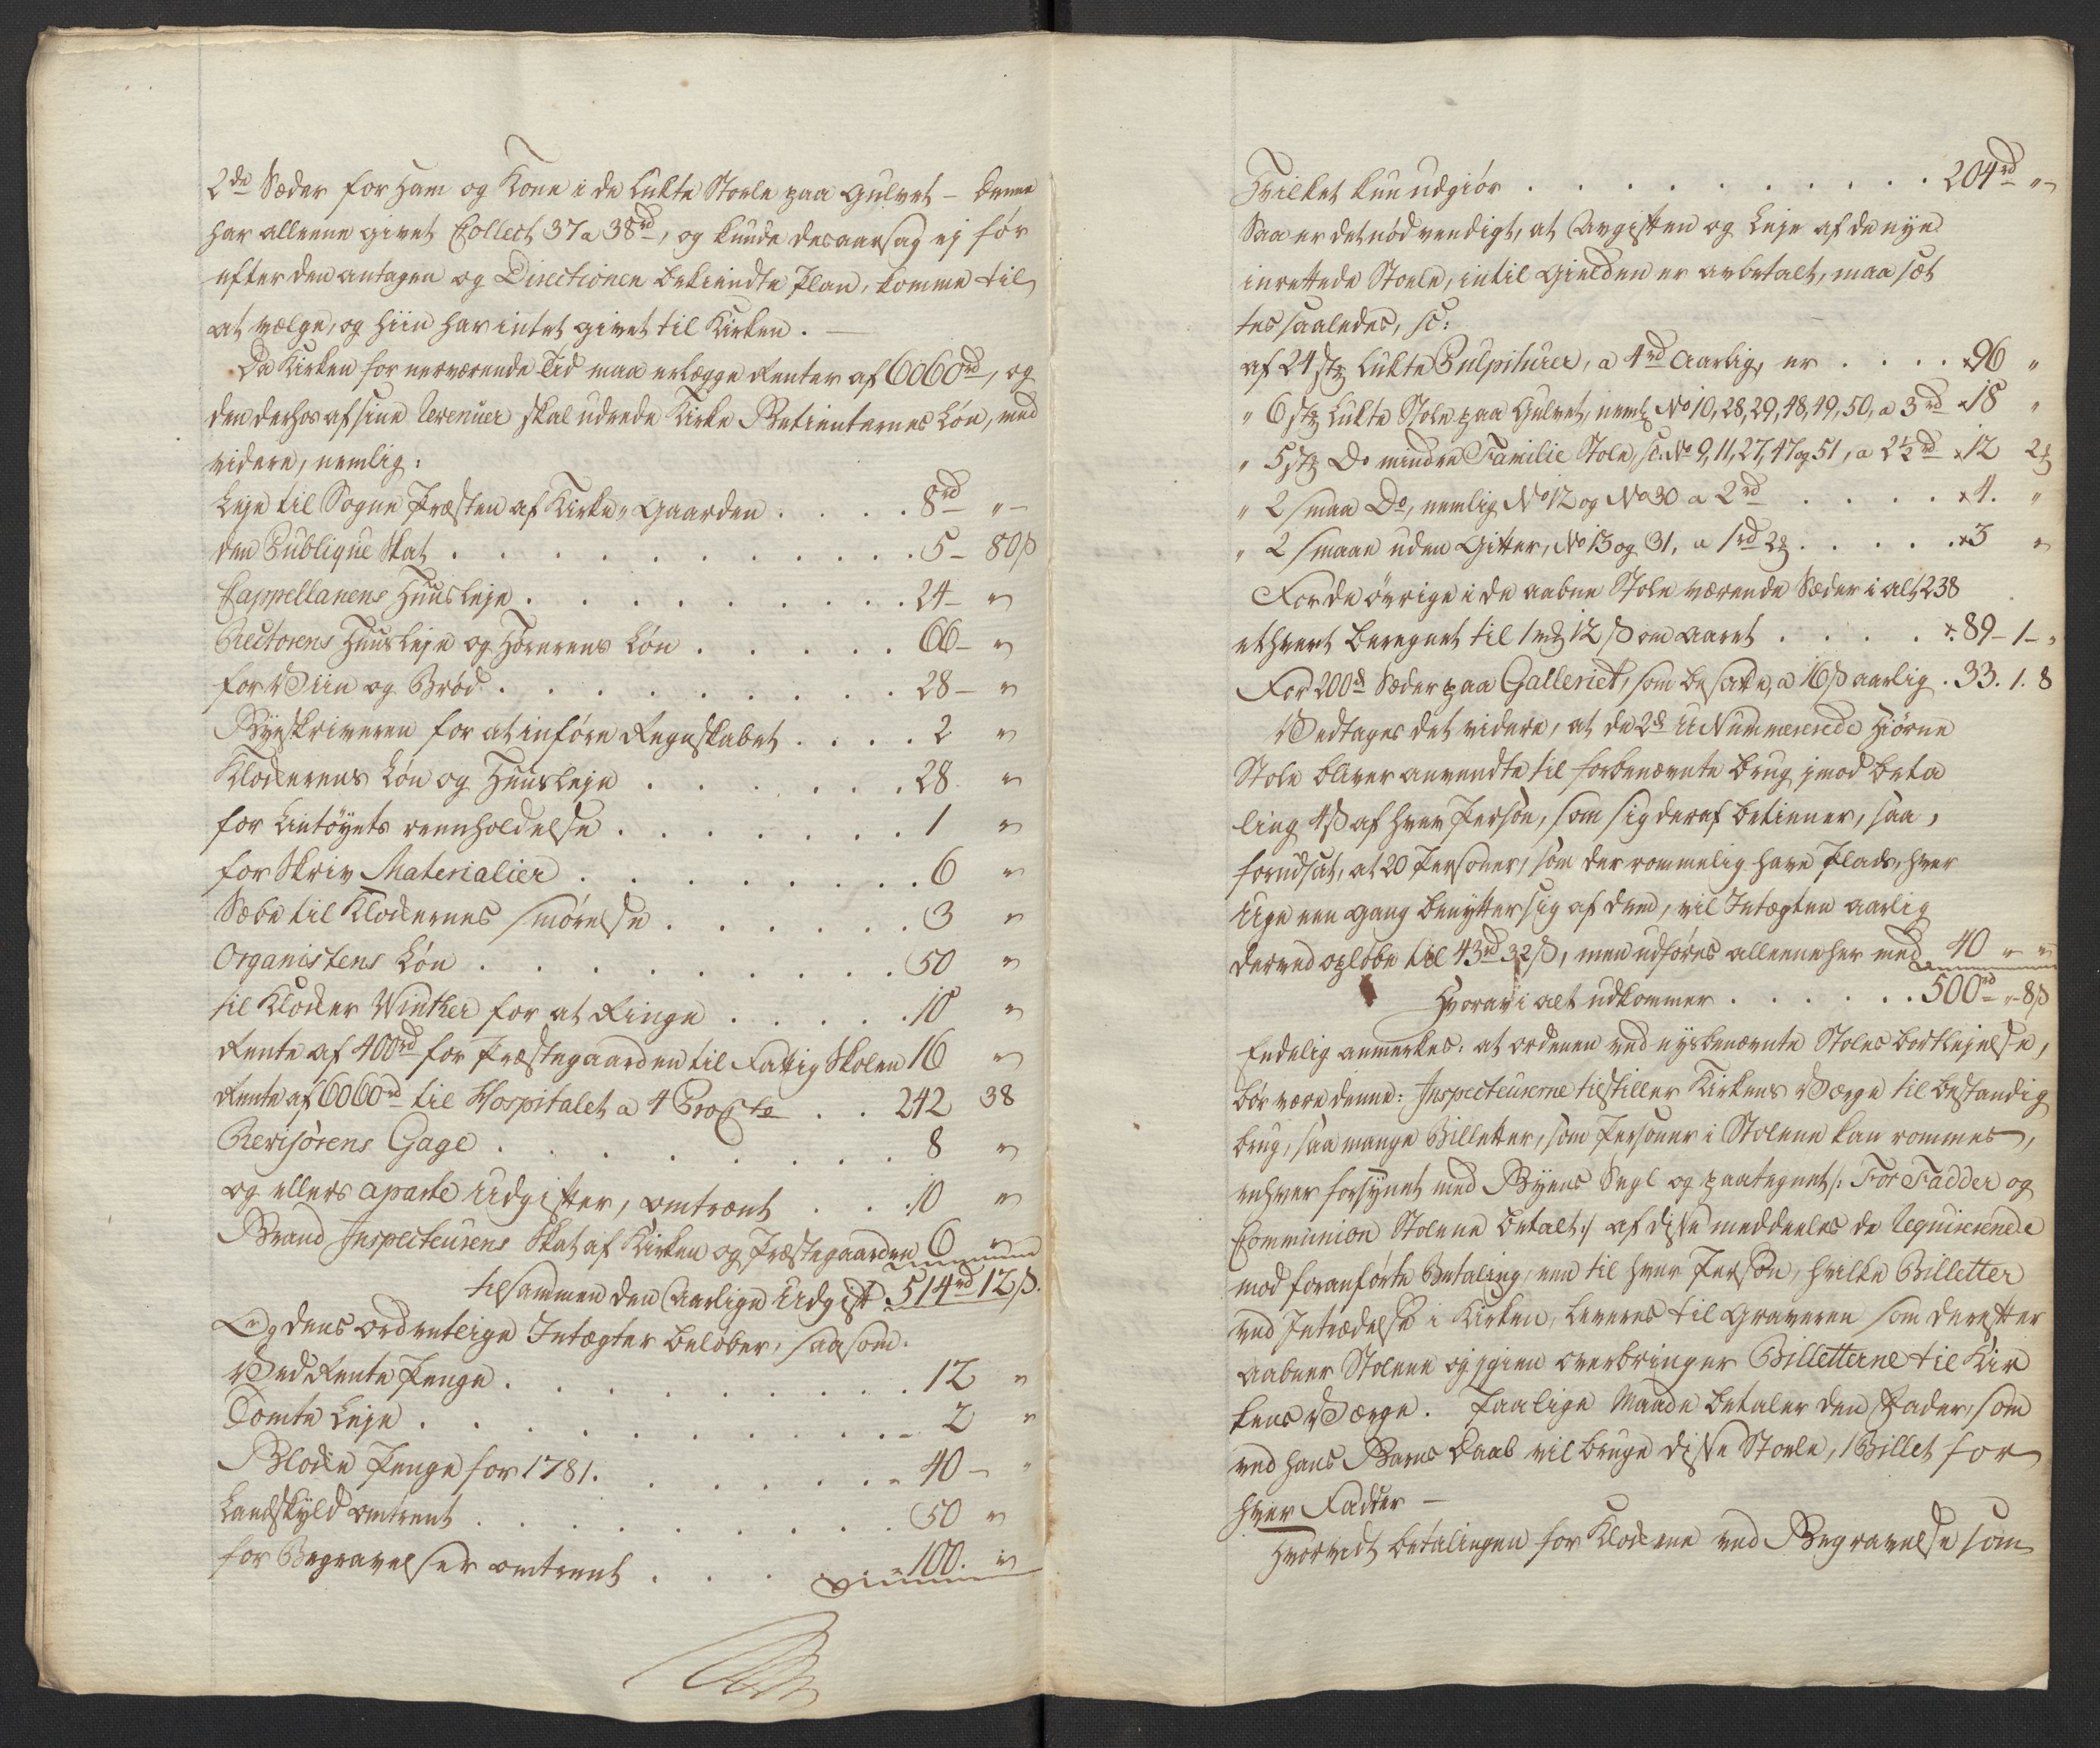 2de Sæder for Ham og Kone i de Lukte Stoele paa Gulvet - denne
har alleene givet Collect 37 a 38rd, og kunde desaarsag ej før
efter den antagen og Directionen bekiendte Plan, komme til
at vælge, og hiin har intet givet til Kirken. —
Da Kirken for nerværende Tid maa erlægge Renter af 6060rd, og
den derhos af sine Revenuer skal udrede Kirke Betienternes Løn, med
videre, nemlig:
Leje til Sogne Præsten af Kirke-Gaarden . . . . 8rd "-
den Publique Skat . . . . . . . . 5- 80ß
Cappellanens Huusleje . . . . . . . . 24- "
Rectorens Huusleje og Hørerens Løn . . . . . 66- "
for Viin og Brød . . . . . . . . 28- "
Byeskriveren for at inføre Regnskabet . . . . 2 "
Klokkerens Løn og Huusleje . . . . . . 28. "
for Lintøyets reenholdelse . . . . . . . 1 "
for Skriv Materialier . . . . . . . . 6 "
Sæbe til Klokkernes smørelse . . . . . . 3 "
Organistens Løn . . . . . . . . . 50 "
til Klokker Winther for at Ringe . . . . . 10 "
Rente af 400rd for Præstegaarden til Fattig Skolen 16 "
Rente af 6060rd til Hospitalet a 4 ProCto . . 242 38
Revisorens Gage . . . . . . . . 8 "
og ellers aparte Udgifter, omtrent . . . 10 "
Brand Inspecteurens Skat af Kirken og Præstegaarden 6 "
tilsammen den Aarlige Udgift 514rd 12ß.
Og dens ordentlige Intægter beløber, saasom.
Ved Rente Penge . . . . . . . . . 12 "
Tomte Leje . . . . . . . . . . 2 "
Blokke Penge for 1781. . . . . . . . 40- "
Landskyld omtrent . . . . . . . . 50 "
for Begravelser omtrent . . . . . 100. "
Hvilket kun udgiør . . . . . . . . . . 204rd "-
Saa er det nødvendigt, at Avgiften og Leje af de nye
inrettede Stoele, intil Gielden er avbetalt, maa sæt
tes saaledes, sc:
af 24 stk Lukte Pulpiturer, a 4rd Aarlig, er . . . . 96 "
" 6 stk Lukte Stole paa Gulvet, neml. No 10, 28, 29, 48, 49, 50, a 3rd 18 "
" 5 stk Do mindre Familie Stole, sc: No 9, 11, 27, 47 og 51, a 2½rd 12 2
" 2 smaa Do, nemlig No 12 og No 30 a 2rd . . . . 4. "
" 2 smaae uden Gitter, No 13 og 31, a 1rd 2 . . . . . 3 "
For de øvrige i de aabne Stole værende Sæder i alt 238
ethvert beregnet til 1 mk 12 ß om aaret . . . . 89- 1- "
For 200de Sæder paa Galleriet, som besatte, a 16ß aarlig . 33. 1. 8
Vedtages det videre, at de 2de UNummererede Hiørne
Stole bliver anvendte til forbenævnte brug imod beta
ling 4ß af hver Person, som sig deraf betiener, saa,
forudsat, at 20 Personer, som der rommelig have Plads, hver
Uge een gang benytter sig af dem, vil Intægten aarlig
derved opløbe til 43rd 32ß, men udføres alleene her med 40 " "
Hvorav i alt udkommer . . . . . . 500rd "- 8ß
Endelig anmerkes: at ordenen ved nysbenævnte Stoles bortlejelse,
bør være denne: Inspecteurerne tilstiller Kirkens Værge til bestandig
brug, saa mange Billetter, som Personer i Stolene kan rommes,
enhver forsynet med Byens Segl og paategnet /: For Fadder og
Communion Stolene betalt :/ af disse meddeeles de Requirerende
mod foranførte Betaling, een til hver Person, hvilke Billetter
ved Intrædelse i Kirken, leveres til Graveren som derefter
aabner Stolene og igien overbringer Billetterne til Kir
kens Værge. Paa lige Maade betaler den Fader, som
ved hans Barns Daab vil bruge disse Stoele, 1 Billet for
hver Fadder —
Hvorvidt betalingen for Klokkene ved Begravelse som